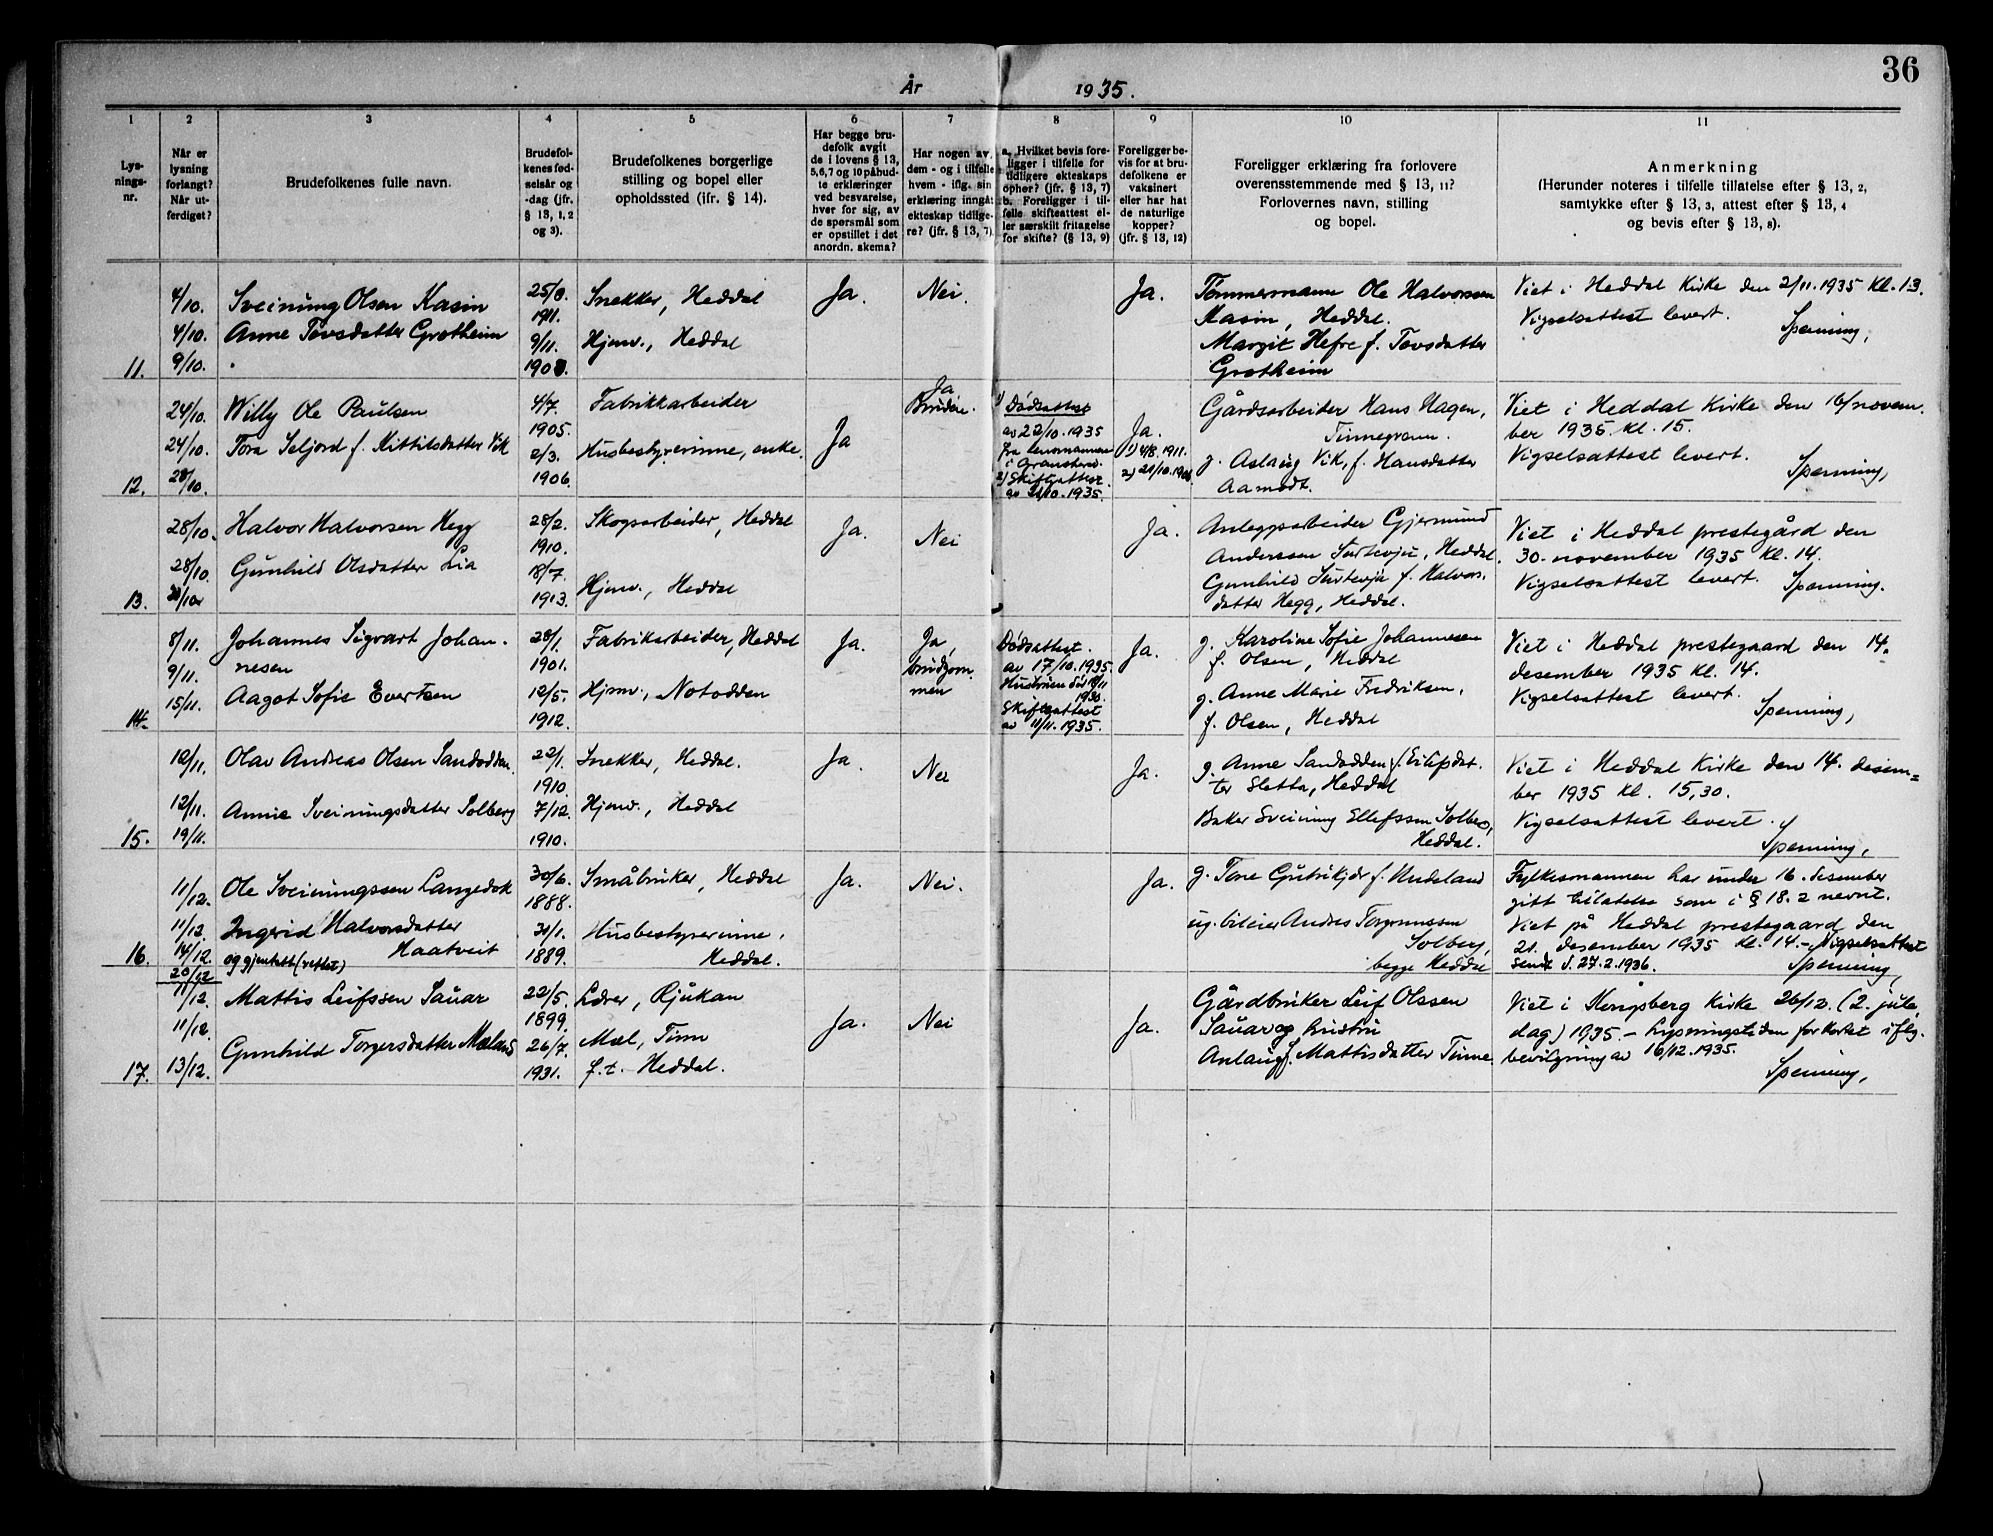 36
År 1935.
1 2 3 4 5 6 7 8 9 10 11
Lys-
nings-
nr.
Når er
lysning
forlangt?
Når ut-
ferdiget?
Brudefolkenes fulle navn.
Brudefol-
kenes fød-
selsår og
-dag (jfr.
§ 13, 1, 2
og 3).
Brudefolkenes borgerlige
stilling og bopel eller
opholdssted (jfr. § 14).
Har begge bru-
defolk avgit
de i lovens § 13,
5, 6, 7 og 10 påbud-
te erklæringer
ved besvarelse,
hver for sig, av
de spørsmål som
er opstillet i det
anordn. skema?
Har nogen av
dem - og i tilfelle
hvem - iflg. sin
erklæring inngåt
ekteskap tidlige-
re? (jfr. § 13, 7)
a. Hvilket bevis fore-
ligger i tilfelle for
tidligere ekteskaps
opher? (jfr. § 13, 7)
b. Foreligger i til-
felle skifteattest el-
ler særskilt fritagelse
for skifte? (§ 13, 9)
Foreligger be-
vis for at bru-
defolkene er
vaksinert
eller har hat
de naturlige
kopper?
(jfr. § 13, 12)
Foreligger erklæring fra forlovere
overensstemmende med § 13, 11?
Forlovernes navn, stilling
og bopel.
Anmerkning
(Herunder noteres i tilfelle tillatelse efter § 13, 2,
samtykke efter § 13, 3, attest efter § 13, 4
og bevis efter § 13, 8).
11.
4/10.
4/10.
9/10.
Sveinung Olsen Kasin
Anne Tovsdatter Grotheim
25/8.
1911.
9/11.
Snekker, Heddal
Hjemv., Heddal
Ja.
Nei.
Ja.
Tømmermann Ole Halvorsen
Kasin, Heddal.
Margit Hefre f. Tovsdatter
Grotheim
Viet i Heddal Kirke den 2/11.1935 Kl. 13.
Vigselsattest levert.
Spenning,
12.
24/10.
24/10.
28/10.
Willy Ole Paulsen
Tora Seljord f. Kittilsdatter Vik
4/7.
1905.
2/3.
1906.
Fabrikkarbeider
Husbestyrerinne, enke.
Ja
Ja
Bruden.
1) Dødsattest
av 22/10.1935
fra lensmannen
i Gransherad.
2) Skifteattest
av 21/10.1935.
Ja.
1) 4/8.1911.
Gårdsarbeider Hans Hagen,
Tinnegrann.
g. Aslaug Vik, f. Hansdatter
Aamodt.
Viet i Heddal Kirke den 16/novem-
ber 1935. Kl. 15.
Vigselsattest levert.
Spenning,
13.
28/10.
28/10.
Halvor Halvorsen Hegg
Gunhild Olsdatter Lia
28/2.
1910.
18/7.
1913.
Skogsarbeider, Heddal
Hjemv., Heddal
Ja.
Nei
Ja.
Anleggsarbeider Gjermund
Anderssen Surtevju, Heddal.
Gunhild Surtevju f. Halvors-
datter Hegg, Heddal.
Viet i Heddal prestegård den
30. november 1935 Kl. 14.
Vigselsattest levert. Spenning.
14.
8/11.
9/11.
15/11.
Johannes Sigvart Johan-
nesen
Aagot Sofie Evertsen
28/1.
1901.
12/5.
1912.
Fabrikarbeider, Heddal
Hjemv., Notodden
Ja.
Ja,
brudgom-
men
Dødsattest.
av 17/10.1935.
Hustruen død
Skifteattest
av 11/11.1935.
Ja.
g. Karoline Sofie Johannesen
f. Olsen, Heddal
g. Anne Marie Fredriksen,
f. Olsen, Heddal
Viet i Heddal prestegaard den 14.
desember 1935 Kl. 14.
Vigselsattest levert.
Spenning,
15.
12/11.
12/11.
19/11.
Olav Andreas Olsen Sandodden.
Annie Sveinungsdatter Solberg
22/1.
1910.
7/12.
1910.
Snekker, Heddal.
Hjemv., Heddal
Ja.
Nei
Ja.
g. Anne Sandodden f. Eilefsdat-
ter Sletta, Heddal
Baker Sveinung Ellefssen Solberg,
Heddal.
Viet i Heddal Kirke den 14. desem-
ber 1935 Kl. 15,30.
Vigselsattest levert.
Spenning,
16.
11/12.
11/12.
14/12.
20/12
Ole Sveinungssen Langedok
Ingerid Halvorsdatter
Haatveit
og gjentatt (rettet)
30/6.
1888.
1889.
Småbruker, Heddal
Husbestyrerinne,
Heddal.
Ja.
Nei.
Ja.
g. Tone Gutrikjer f. Hudeland
ug. bileier Andres Torgrimssen
Solberg,
begge Heddal
Fylkesmannen har under 16. desember
gitt tillatelse som i § 18.2 nevnt.
Viet på Heddal prestegaard den
21. desember 1935 Kl. 14.- Vigselsattest
sendt d. 27.2.1936.
Spenning,
17.
11/12.
11/12.
13/12.
Mattis Leifssen Sauar
Gunhild Torgersdatter Mæland
22/5.
1899.
26/7.
1931.
Lærer, Rjukan
Mæl, Tinn
f.t. Heddal.
Ja.
Nei
Ja.
Gårdbruker Leif Olssen
Sauar og hustru
Aslaug f. Mattisdatter Tinne.
Viet i Kongsberg Kirke 26/12. (2. jule-
dag) 1935. - Lysningstiden forkortet iflg.
bevilgning av 16/12.1935.
Spenning,